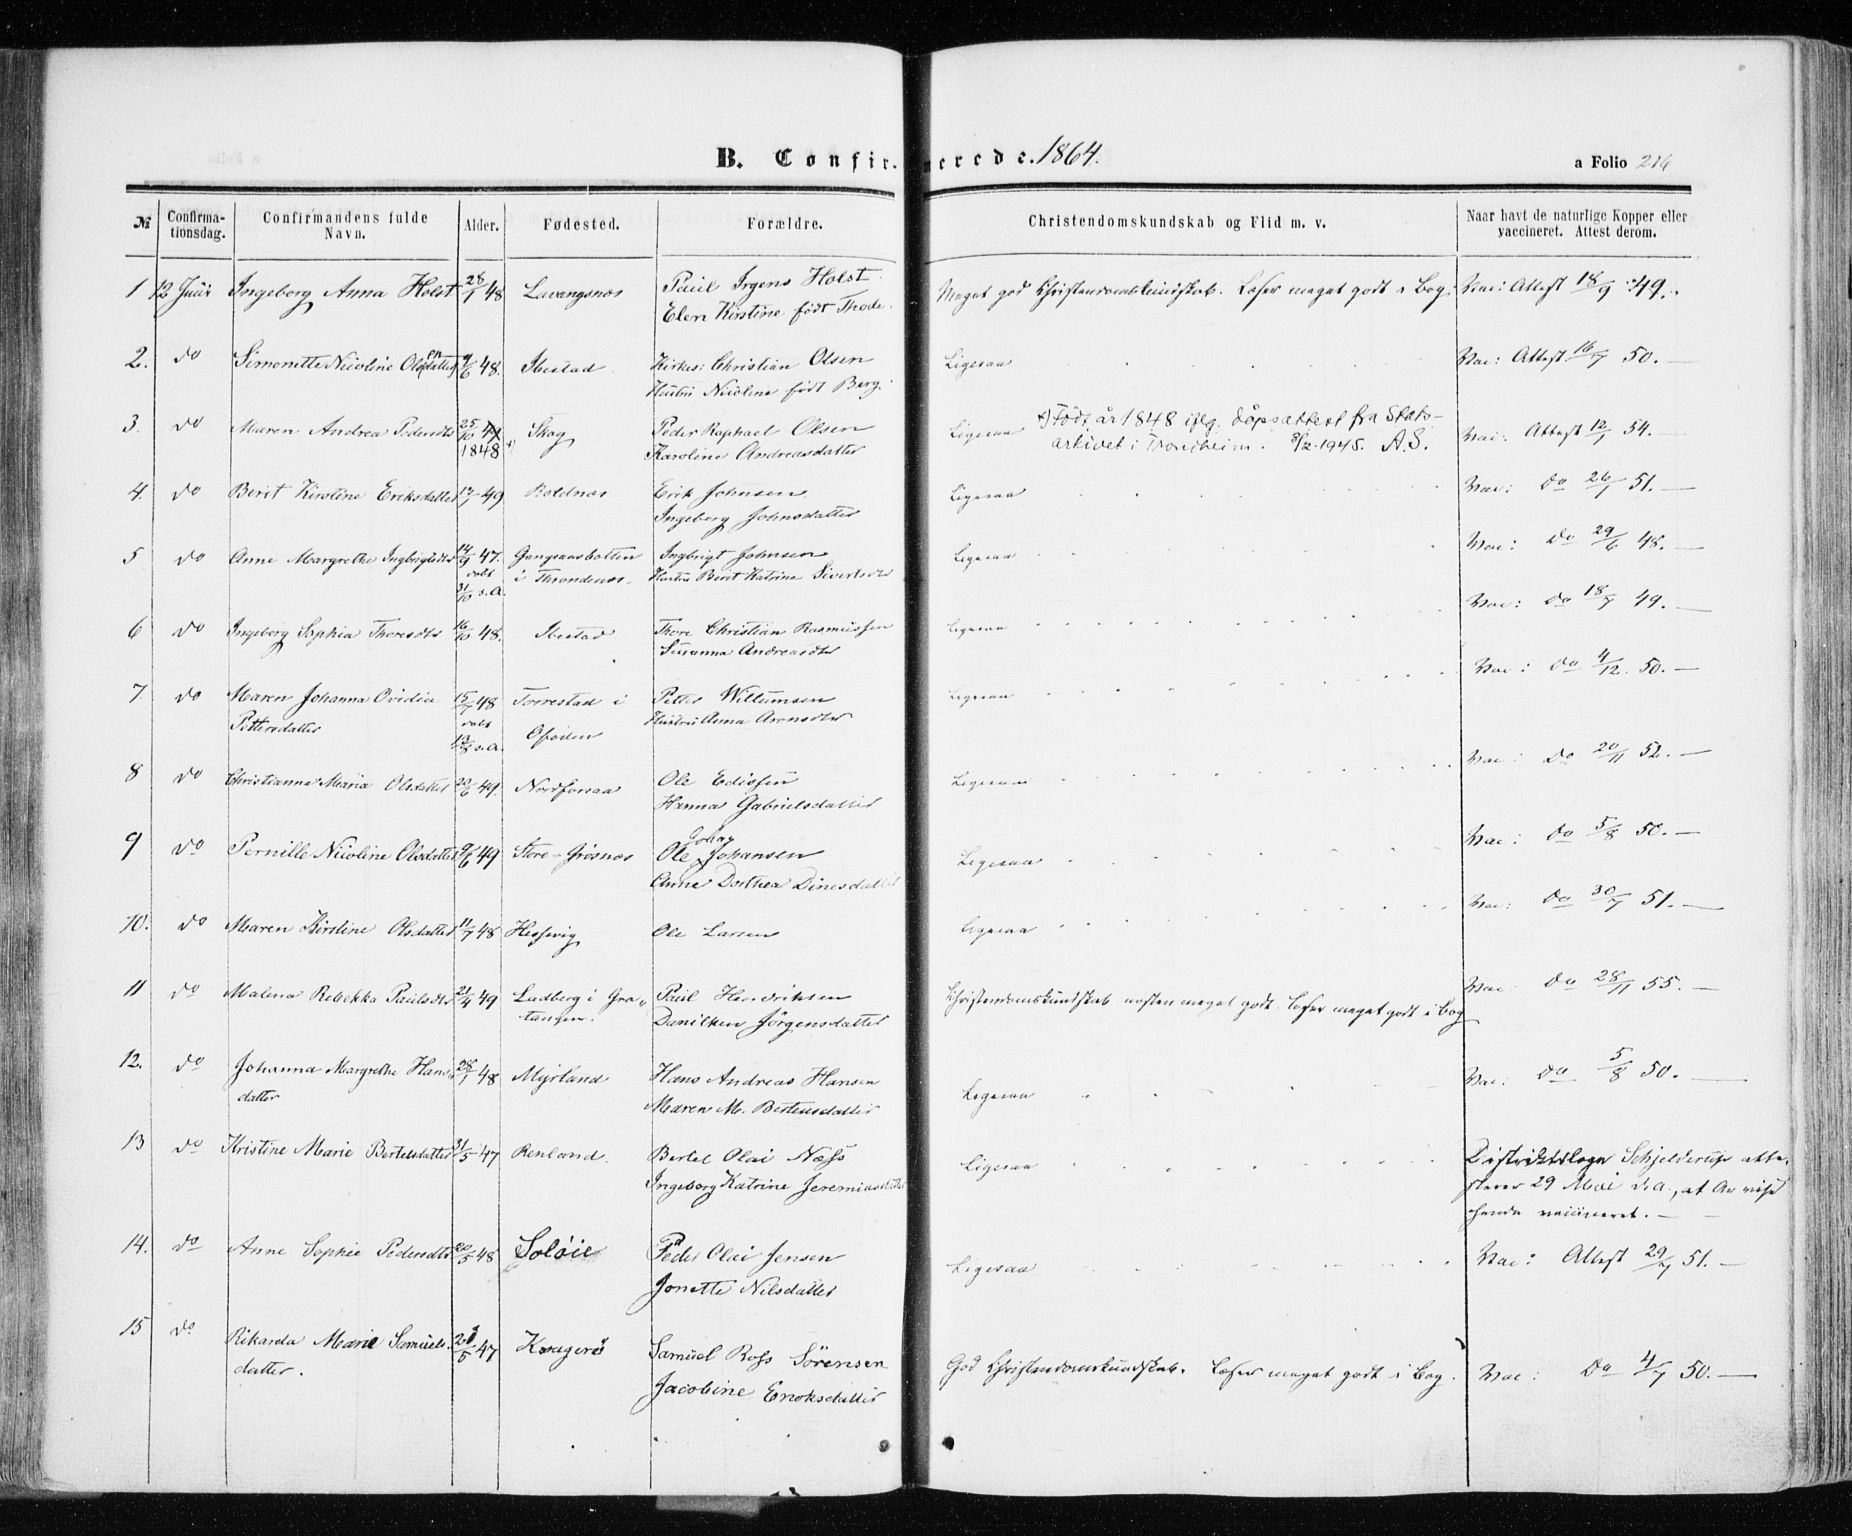 B. Confirmerede. 1864.
a Folio 216
№ Confirmationsdag. Confirmandens fulde Navn. Alder. Fødested. Forældre. Christendomskundskab og Flid m. v. Naar havt de naturlige Kopper eller vaccineret. Attest derom.
1 12 Juni Ingeborg Anna Holst 28/1 48 Lavangsnæs Paul Irgens Holst Meget god Christendomskundskab. Læser meget godt i Bog. Vac: Attest 18/9 49.
Elen Kirstine født Thode
2. do Simonette Nicoline Olsen (datter) 9/6 48. Ibestad Kirkes: Christian Olsen Ligesaa Vac: Attest 16/7 50. —
Hustru Nicoline født Berg
3. do Maren Andrea Pedersdtr 25/10 49 Skog Peder Raphael Olsen Ligesaa x) Født år 1848 iflg. dåpsattest fra Stats- Vac: Attest 12/1 54. —
1848 x) Karoline Andreasdatter arkivet i Trondheim. 8/2-1945. A.S.
4. do Berit Kirstine Eriksdatter 12/7 49 Roldnæs Erik Johnsen Ligesaa Vac: do 26/1 51. —
Ingeborg Johnsdatter
5 do Anne Margrethe Ingbrigtsdtr 14/9 47. Gangsaasbotten Ingbrigt Johnsen Ligesaa Vac: do 29/6 48. —
døbt 31/10 s.a. i Throndenæs. Hustru Berit Katrine Sivertsdtr
6 do Ingeborg Sophia Thoresdtr 16/10 48. Ibestad Thore Christian Rasmussen Ligesaa Vac: do 18/7 49. —
Susanna Andreasdtr
7. do Maren Johanna Ovidia 15/7 48 Torrestad i Petter Willumsen Ligesaa Vac: do 4/12. 50. —
Pettersdatter døbt 13/8 s.a. Ofoden Hustru Anna Aronsdtr
8 do Christianna Maria Olsdatter 20/6 49. Nordforsaa Ole Edissen Ligesaa Vac: do 20/11 52. —
Hanna Gabrielsdatter
9 do Pernille Nicoline Olsdatter 9/6 49 Store-Grøsnæs Ole Johan Johansen Ligesaa Vac: do 5/8 50. —
Anne Dorthea Dinesdatter
10. do Maren Kirstine Olsdatter 11/7 48 Hessevig Ole Larsen Ligesaa Vac: do 30/7 51. —
11 do Malena Rebekka Paulsdtr 21/4 49 Ludberg i Gra- Paul Hendriksen Christendomskundskab næsten meget godt. Læser meget godt i Bog Vac: do 28/11 55. —
tangen. Danilken Jörgensdatter
12. do Johanna Margrethe Hans- 28/1 48 Myrland Hans Andreas Hansen Ligesaa Vac: do 5/8 50. —
datter Maren M. Bertensdatter
13 do Kristine Marie Bertelsdatter 31/5 47 Renland. Bertel Olai Næss Ligesaa Distriktslæge Schjelderup atte-
Ingeborg Katrine Jeremiasdatter sterer 29 Mai d.a., at
hende vaccineret. —
14. do Anne Sophie Pedersdtr 20/5 48 Soløie Peder Olai Jensen Ligesaa Vac: Attest 29/7 51. —
Jonette Nilsdatter
15 do Rikarda Marie Samuels- 20/5 47 Kragerø Samuel Ross Sörensen God Christendomskundskab. Læser meget godt i Bog. Vac: do 4/7 50. —
datter. Jacobine Enoksdatter